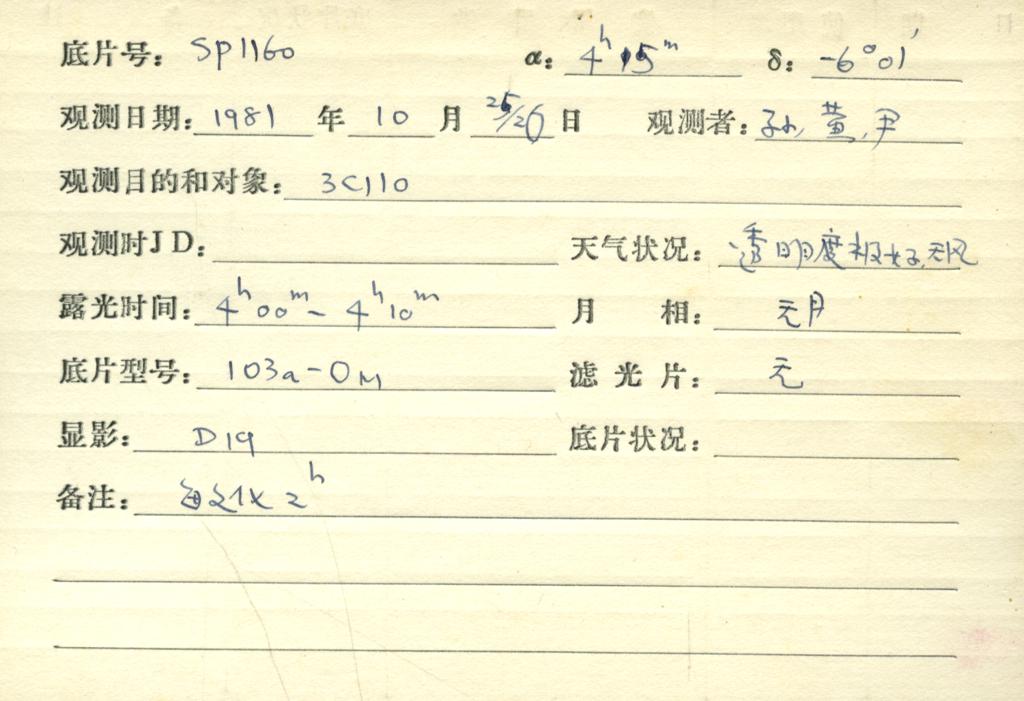 底片号: SP1160 α: 4ʰ15ᵐ δ: -6°01′
观测日期: 1981 年 10 月 25/26 日 观测者: 孙, 黄, 尹
观测目的和对象: 3C110
观测时JD: 天气状况: 透明度极好, 无风
露光时间: 4ʰ00ᵐ - 4ʰ10ᵐ 月 相: 无月
底片型号: 103a-O 滤光片: 无
显影: D19 底片状况:
备注: 2ʰ